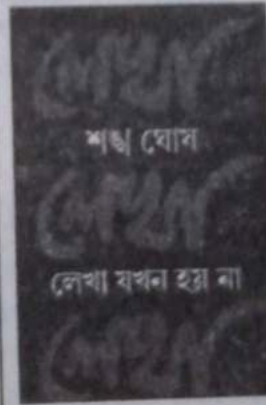 লেখা
শঙ্খ ঘোষ
লেখা
লেখা যখন হয় না
লেখা